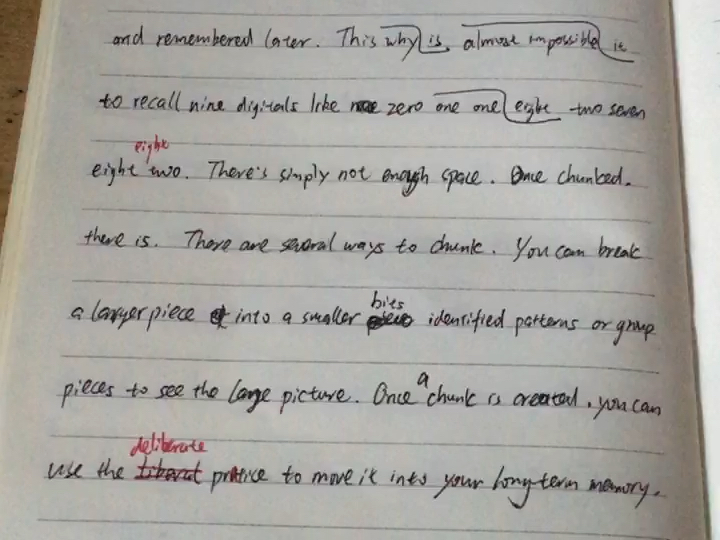 and remembered later. This why is, almost impossible it
to recall nine digitals like zero one one eight two seven
eight
eight two. There's simply not enough space. Once chunked.
there is. There are several ways to chunk. You can break
bits
a larger piece into a smaller identified patterns or group
a
pieces to see the large picture. Once chunk is created, you can
deliberate
use the liberat pratice to move it into your long-term memory.